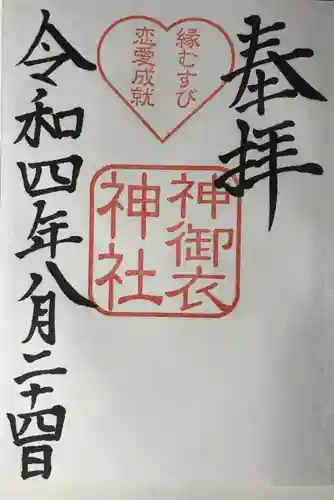 奉拝
縁むすび
恋愛成就
神御衣
神社
令和四年八月二十四日